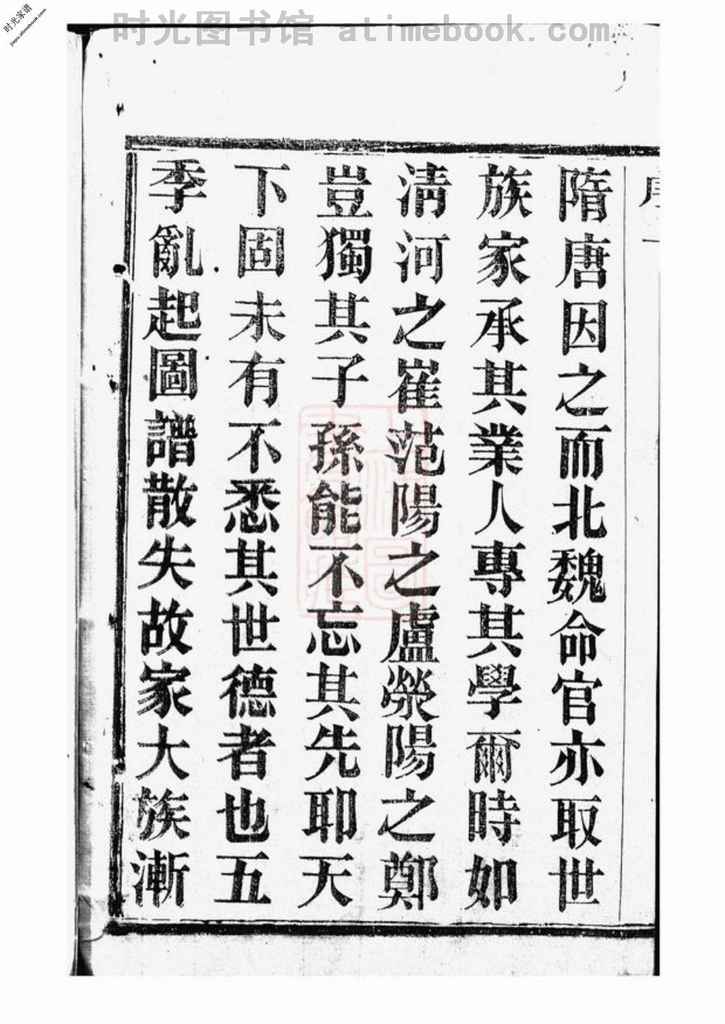 时光图书馆 atimebook.com
时光家谱
隋唐因之而北魏命官亦取世
族家承其業人專其學爾時如
清河之崔范陽之盧滎陽之鄭
豈獨其子孫能不忘其先耶天
下固未有不悉其世德者也五
季亂起圖譜散失故家大族漸